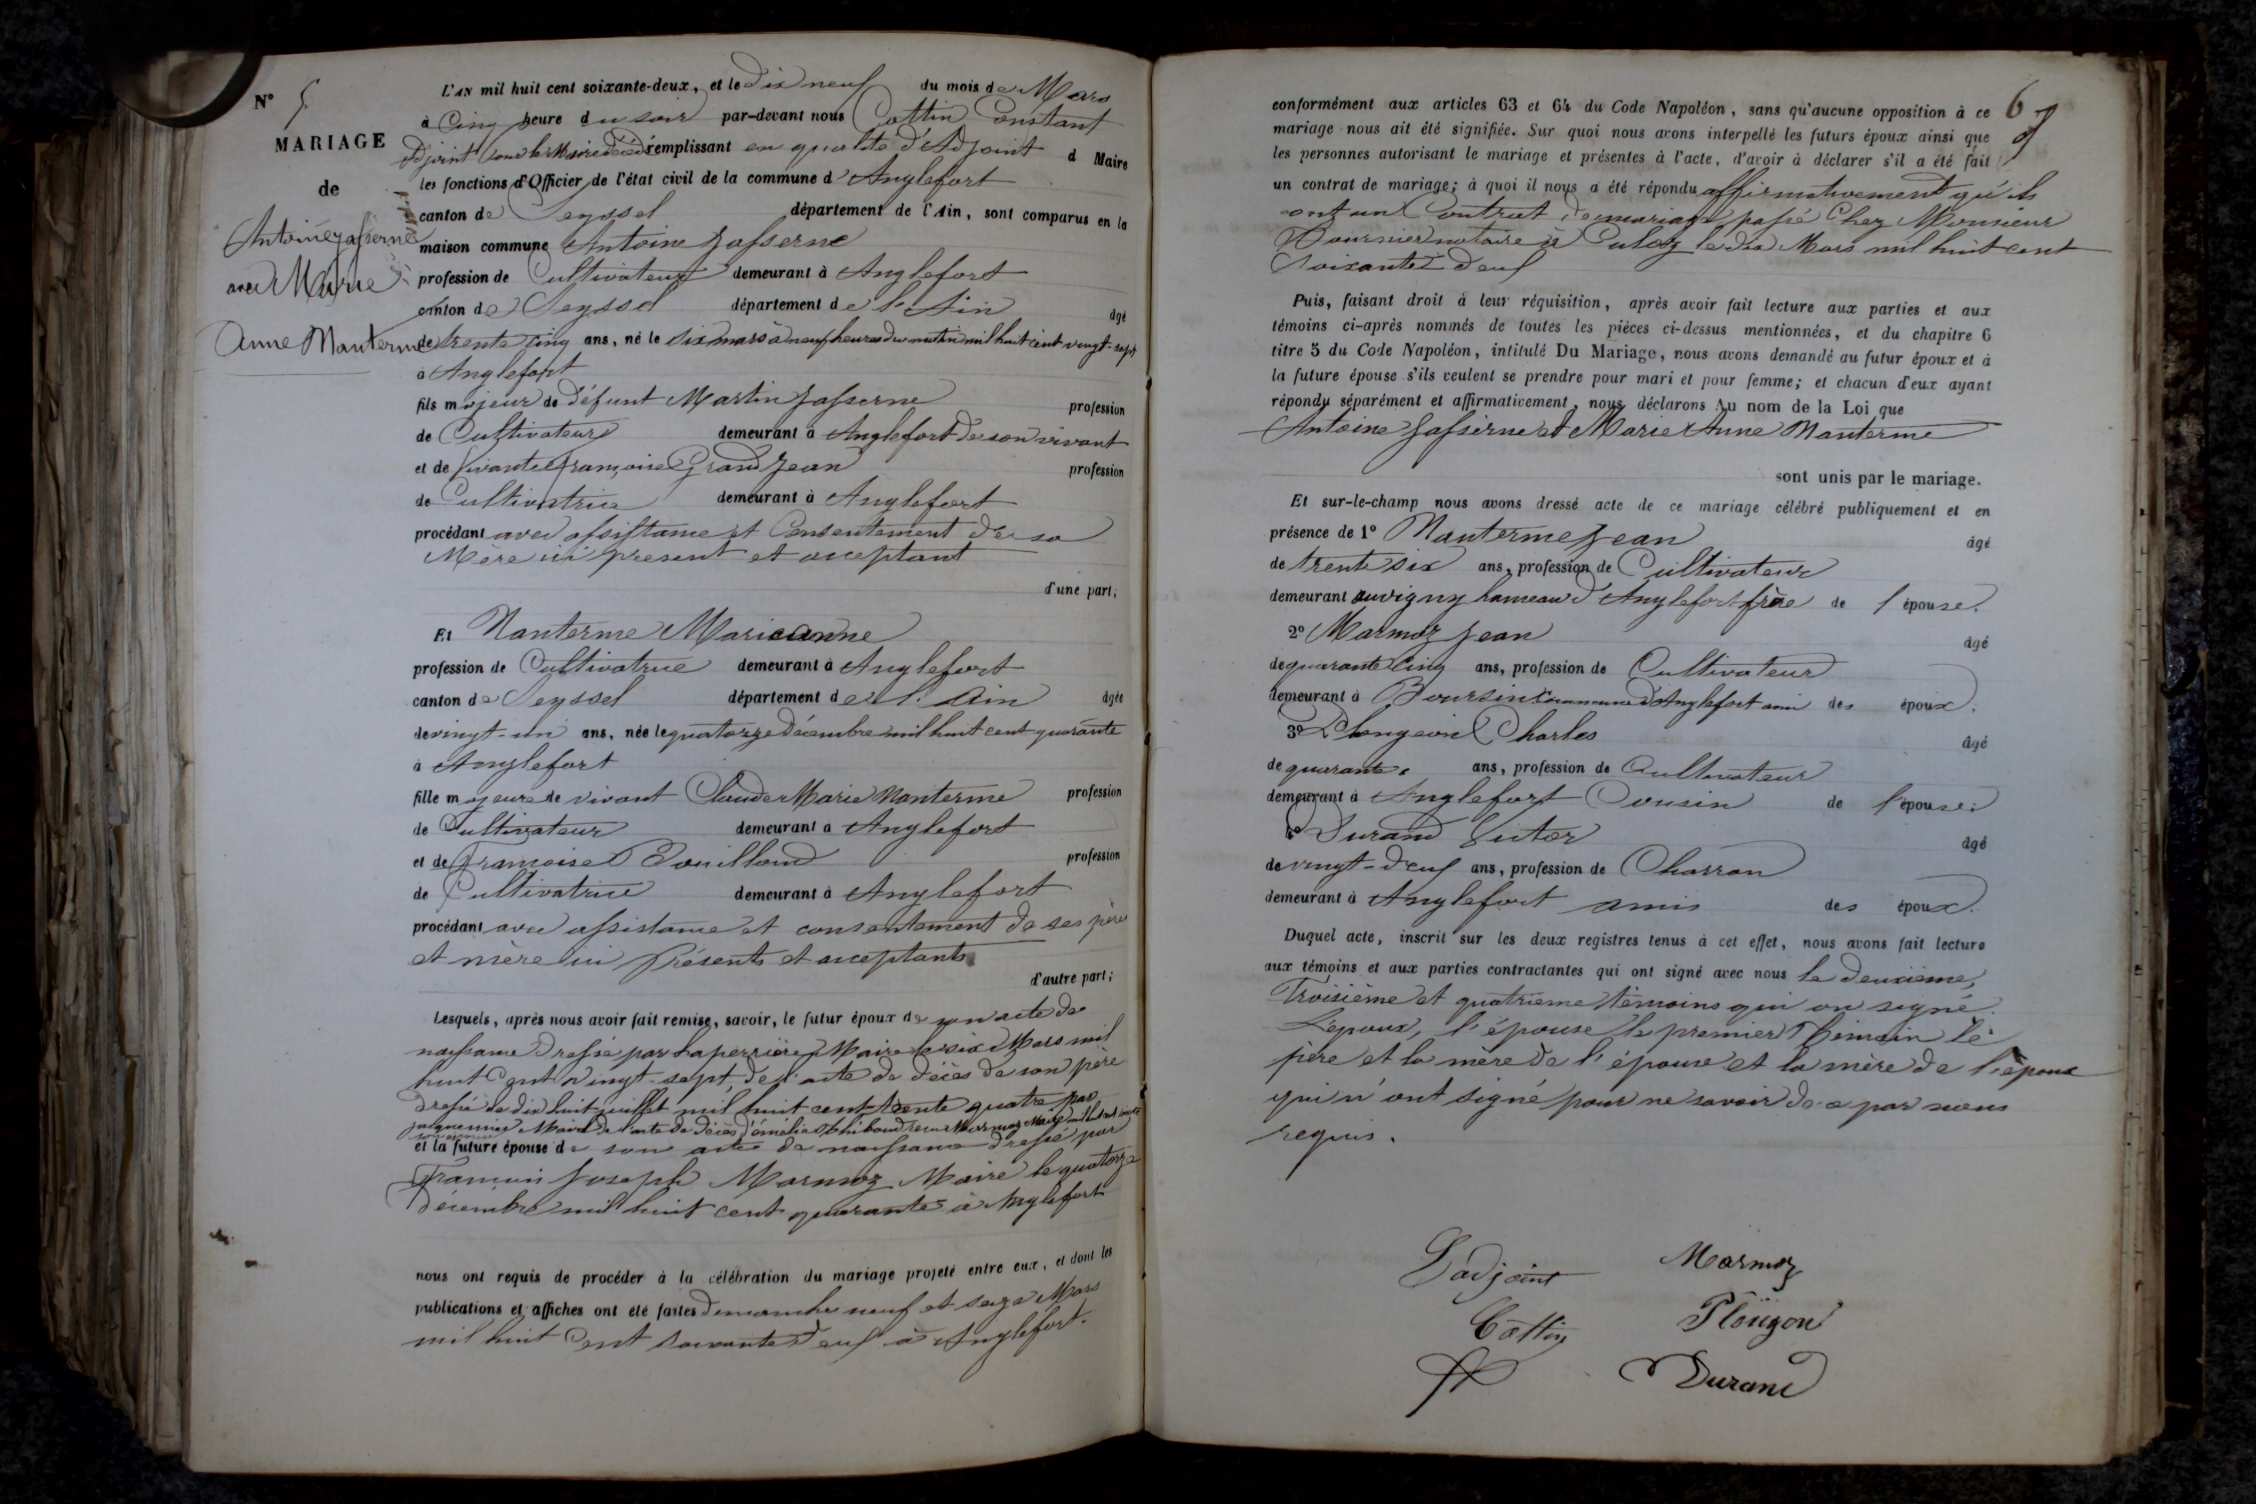 N° 5
MARIAGE
de
Antoine Jasserne
avec Marie
Anne Nanterme
L'AN mil huit cent soixante-deux, et le dix neuf du mois de Mars
à Cinq heure du soir par-devant nous Cottin Constant
Adjoint pour le Maire remplissant en qualité d'Adjoint d Maire
les fonctions d'Officier de l'état civil de la commune d'Anglefort
canton de Seyssel département de l'Ain, sont comparus en la
maison commune Antoine Jasserne
profession de Cultivateur demeurant à Anglefort
canton de Seyssel département de l'Ain âgé
de trente cinq ans, né le six mars à neuf heures du matin mil huit cent vingt-sept
à Anglefort
fils majeur de défunt Martin Jasserne profession
de Cultivateur demeurant à Anglefort de son vivant
et de vivante Françoise Grand Jean profession
de Cultivatrice demeurant à Anglefort
procédant avec assistance et Consentement de sa
Mère ici présent et acceptant
d'une part;
Et Nanterme Marie anne
profession de Cultivatrice demeurant à Anglefort
canton de Seyssel département de l'Ain âgée
de vingt-un ans, née le quatorze Décembre mil huit cent quarante
à Anglefort
fille majeure de vivant Claude Marie Nanterme profession
de Cultivateur demeurant à Anglefort
et de Françoise Bouilloud profession
de Cultivatrice demeurant à Anglefort
procédant avec assistance et consentement de ses père
et mère ici présents et acceptants
d'autre part;
Lesquels, après nous avoir fait remise, savoir, le futur époux de son acte de
naissance dressé par Laperrière Maire le six Mars mil
huit Cent vingt-sept, de l'acte de décès de son père
dressé le dix huit juillet mil huit cent trente quatre par
Maire de l'acte de décès d'émélie Thiboud Marmoz Maire mil huit cent
et la future épouse de son acte de naissance dressé par
François Joseph Marmoz Maire le quatorze
Décembre mil huit cent quarante à Anglefort
nous ont requis de procéder à la célébration du mariage projeté entre eux, et dont les
publications et affiches ont été faites Dimanche neuf et seize Mars
mil huit Cent soixante deux à Anglefort.
67
conformément aux articles 63 et 64 du Code Napoléon, sans qu'aucune opposition à ce
mariage nous ait été signifiée. Sur quoi nous avons interpellé les futurs époux ainsi que
les personnes autorisant le mariage et présentes à l'acte, d'avoir à déclarer s'il a été fait
un contrat de mariage; à quoi il nous a été répondu affirmativement qu'ils
ont un Contrat de mariage passé Chez Monsieur
Fournier notaire à Culoz le dix Mars mil huit cent
Soixante deux
Puis, faisant droit à leur réquisition, après avoir fait lecture aux parties et aux
témoins ci-après nommés de toutes les pièces ci-dessus mentionnées, et du chapitre 6
titre 5 du Code Napoléon, intitulé Du Mariage, nous avons demandé au futur époux et à
la future épouse s'ils veulent se prendre pour mari et pour femme; et chacun d'eux ayant
répondu séparément et affirmativement, nous déclarons Au nom de la Loi que
Antoine Jasserne et Marie Anne Nanterme
sont unis par le mariage.
Et sur-le-champ nous avons dressé acte de ce mariage célébré publiquement et en
présence de 1° Nanterme Jean âgé
de trente six ans, profession de Cultivateur
demeurant auvigny hameau d'Anglefort frère de l'épouse.
2° Marmoz Jean âgé
de quarante Cinq ans, profession de Cultivateur
demeurant à Boursin Commune d'Anglefort ami des époux.
3° Plongeon Charles âgé
de quarante ans, profession de Cultivateur
demeurant à Anglefort Cousin de l'épouse.
4° Durand Victor âgé
de vingt-deux ans, profession de Charron
demeurant à Anglefort amis des époux.
Duquel acte, inscrit sur les deux registres tenus à cet effet, nous avons fait lecture
aux témoins et aux parties contractantes qui ont signé avec nous le deuxième,
Troisième et quatrième témoins qui on signé.
L'epoux, l'épouse le premier Témoin le
père et la mère de l'épouse et la mère de l'époux
qui n'ont signé pour ne savoir de ce par nous
requis.
L'adjoint
Marmoz
Cottin
Plougon
Durand